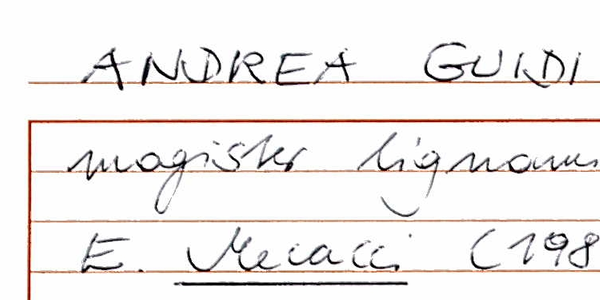 ANDREA GUIDI
magister lignam
E. Mecacci (198